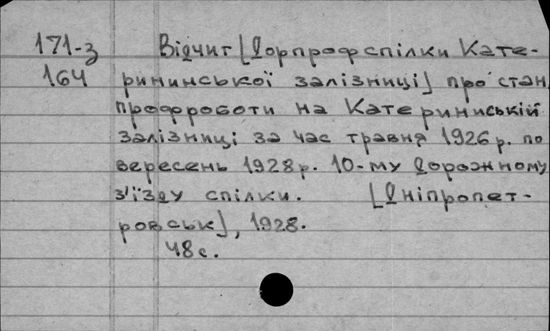 171-з Відчит [Дорпрофспілки Кате-
164 рининської залізниці] про стан
профроботи на Катериниській
залізниці за час травня 1926 р. по
вересень 1928 р. 10-му дорожному
з'їзду спілки. [Дніпропет-
ровськ], 1928.
48 с.